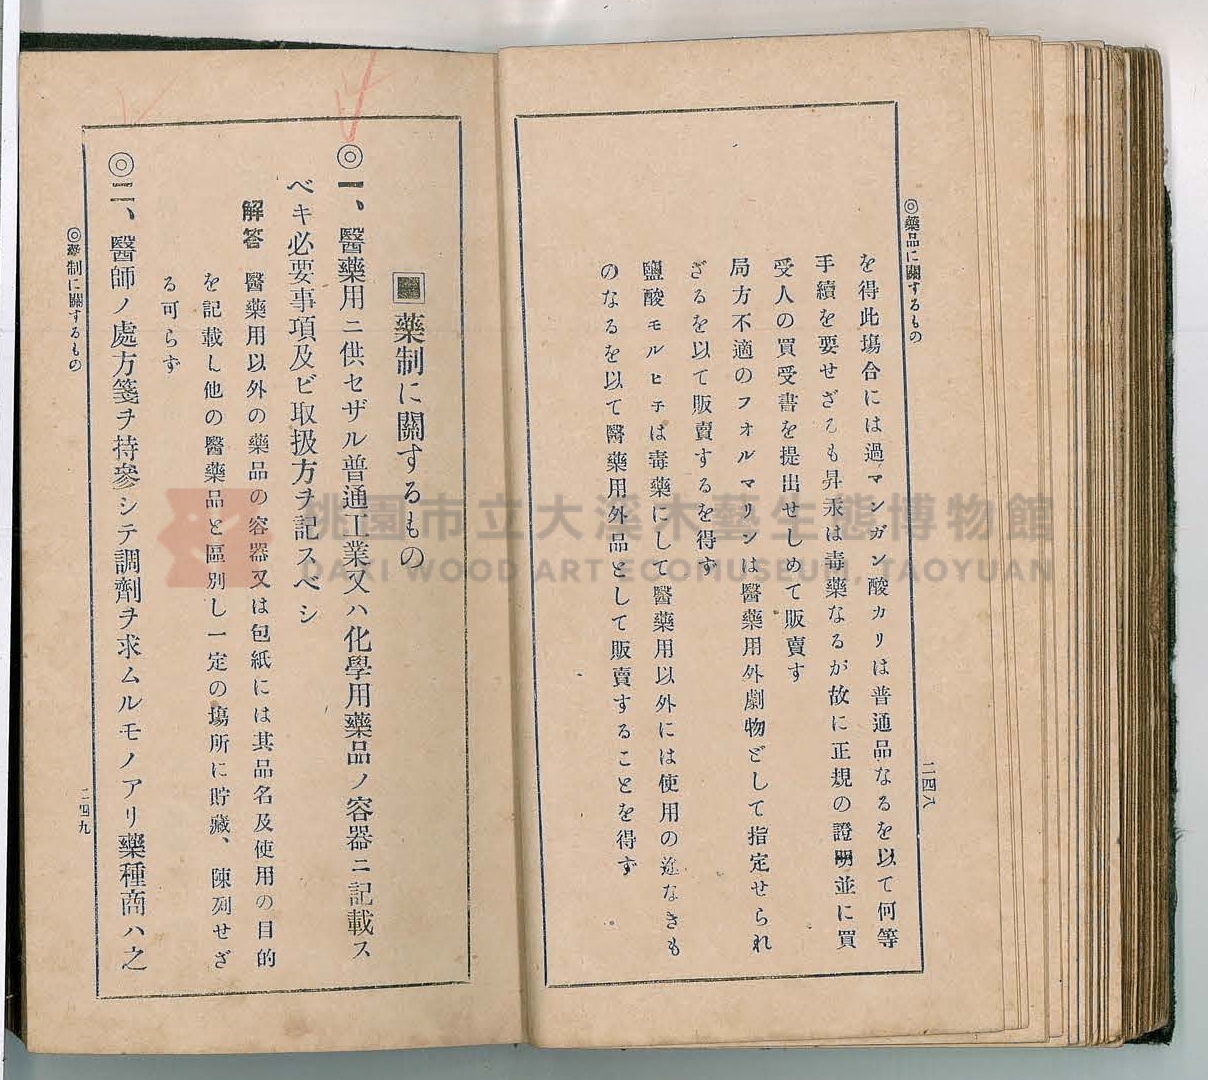 ◎藥品に關するもの
二四八
を得此塲合には過マンガン酸カリは普通品なるを以て何等
手續を要せざるも昇汞は毒藥なるが故に正規の證明並に買
受人の買受書を提出せしめて販賣す
局方不適のフオルマリンは醫藥用外劇物どして指定せられ
ざるを以て販賣するを得ず
鹽酸モルヒ子は毒藥にして醫藥用以外には使用の途なきも
のなるを以て醫藥用外品として販賣することを得ず
藥制に關するもの
◎一、醫藥用ニ供セザル普通工業又ハ化學用藥品ノ容器ニ記載ス
ベキ必要事項及ビ取扱方ヲ記スベシ
解答 醫藥用以外の藥品の容器又は包紙には其品名及使用の目的
を記載し他の醫藥品と區別し一定の塲所に貯藏、陳列せざ
る可らず
◎二、醫師ノ處方箋ヲ持參シテ調劑ヲ求ムルモノアリ藥種商ハ之
◎藥制に關するもの
二四九
桃園市立大溪木藝生態博物館
DAXI WOOD ART ECOMUSEUM, TAOYUAN